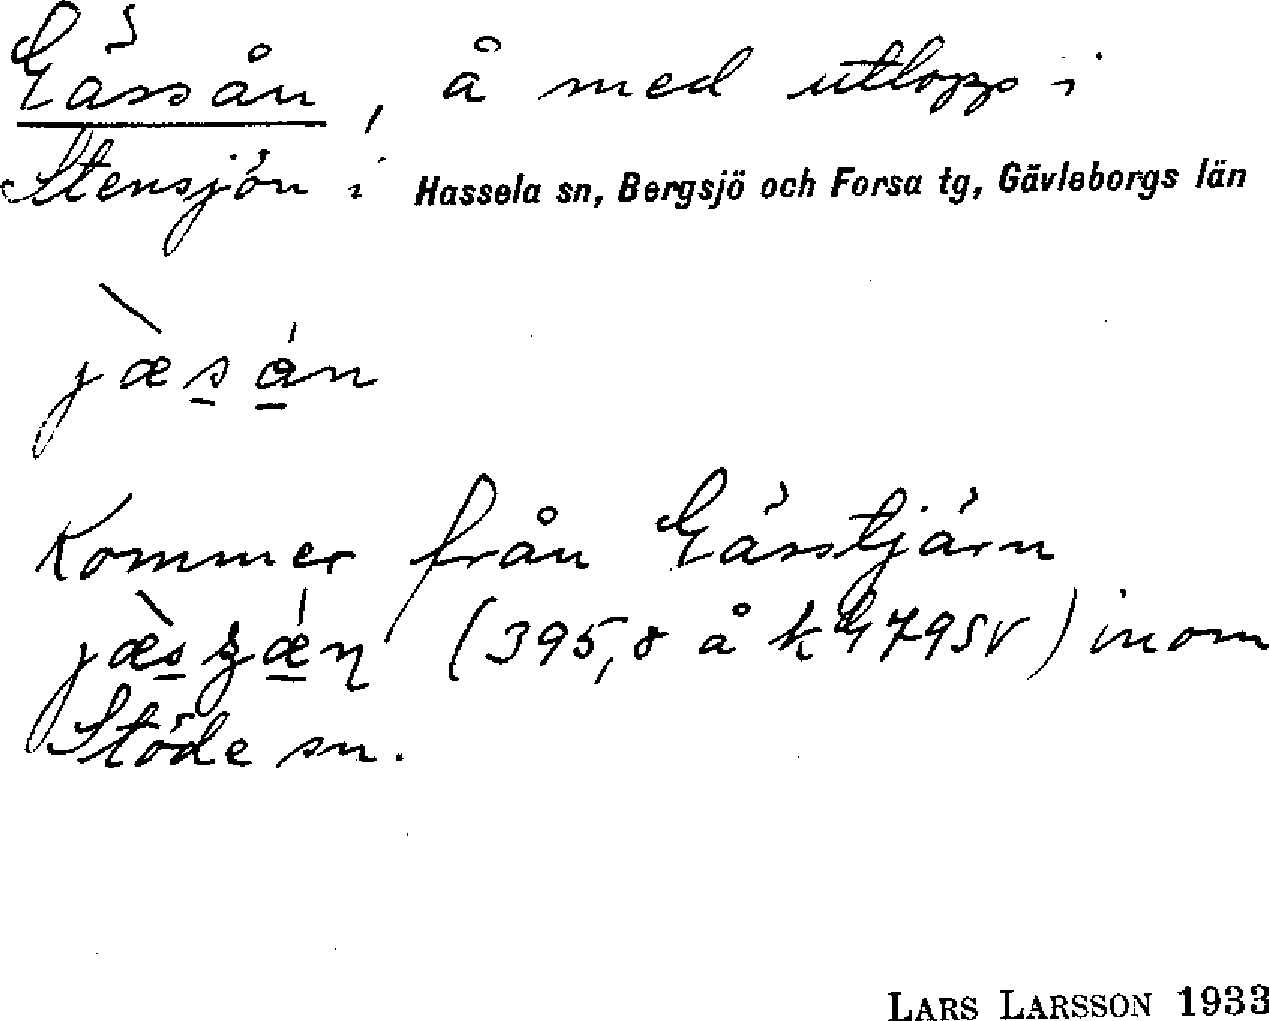 Gässån, å med utlopp i
Stensjön i Hassela sn, Bergsjö och Forsa tg, Gävleborgs län
jæ̀sån
Kommer från Gässtjärn
(395,8 å k 479SV) inom
Stöde sn.
LARS LARSSON 1933